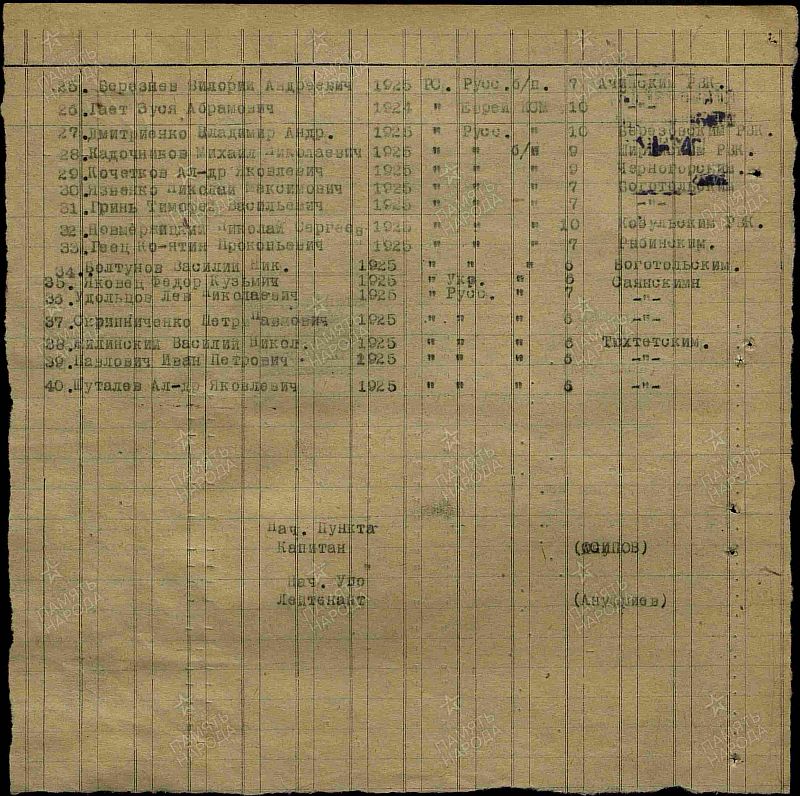 25. Березнев Вилорий Андреевич 1925 РС. Русс. б/п. 7 Ачинским РВК.
26. Гает Зуся Абрамович 1924 " Еврей КСМ 10
27. Дмитриенко Владимир Андр. 1925 " Русс. " 10 Березовским РВК.
28. Кадочников Михаил Николаевич 1925 " " б/п 9 РВК.
29. Кочетков Ал-др Яковлевич 1925 " " " 9 Черногорским.
30. Язвенко Николай Максимович 1925 " " " 7 Боготольским
31. Гринь Тимофей Васильевич 1925 " " " 7 -"-
32. Новмержицкий Николай Сергеев 1925 " " " 10 Козульским РВК.
33. Геец Ко-нтин Прокопьевич 1925 " " " 7 Рыбинским.
34. Болтунов Василий Ник. 1925 " " " 6 Боготольским.
35. Яковец Федор Кузьмич 1925 " Укр. " 6 Саянскимн
36. Удольцов Лев Николаевич 1925 " Русс. " 7 -"-
37. Скрипниченко Петр Павлович 1925 " " " 6 -"-
38. Жилинский Василий Никол. 1925 " " " 6 Тюхтетским.
39. Павлович Иван Петрович 1925 " " " 6 -"-
40. Шуталев Ал-др Яковлевич 1925 " " " 6 -"-
Нач. Пункта
Капитан (ОСИПОВ)
Нач. Уло
Лейтенант (Ануфриев)
ПАМЯТЬ НАРОДА